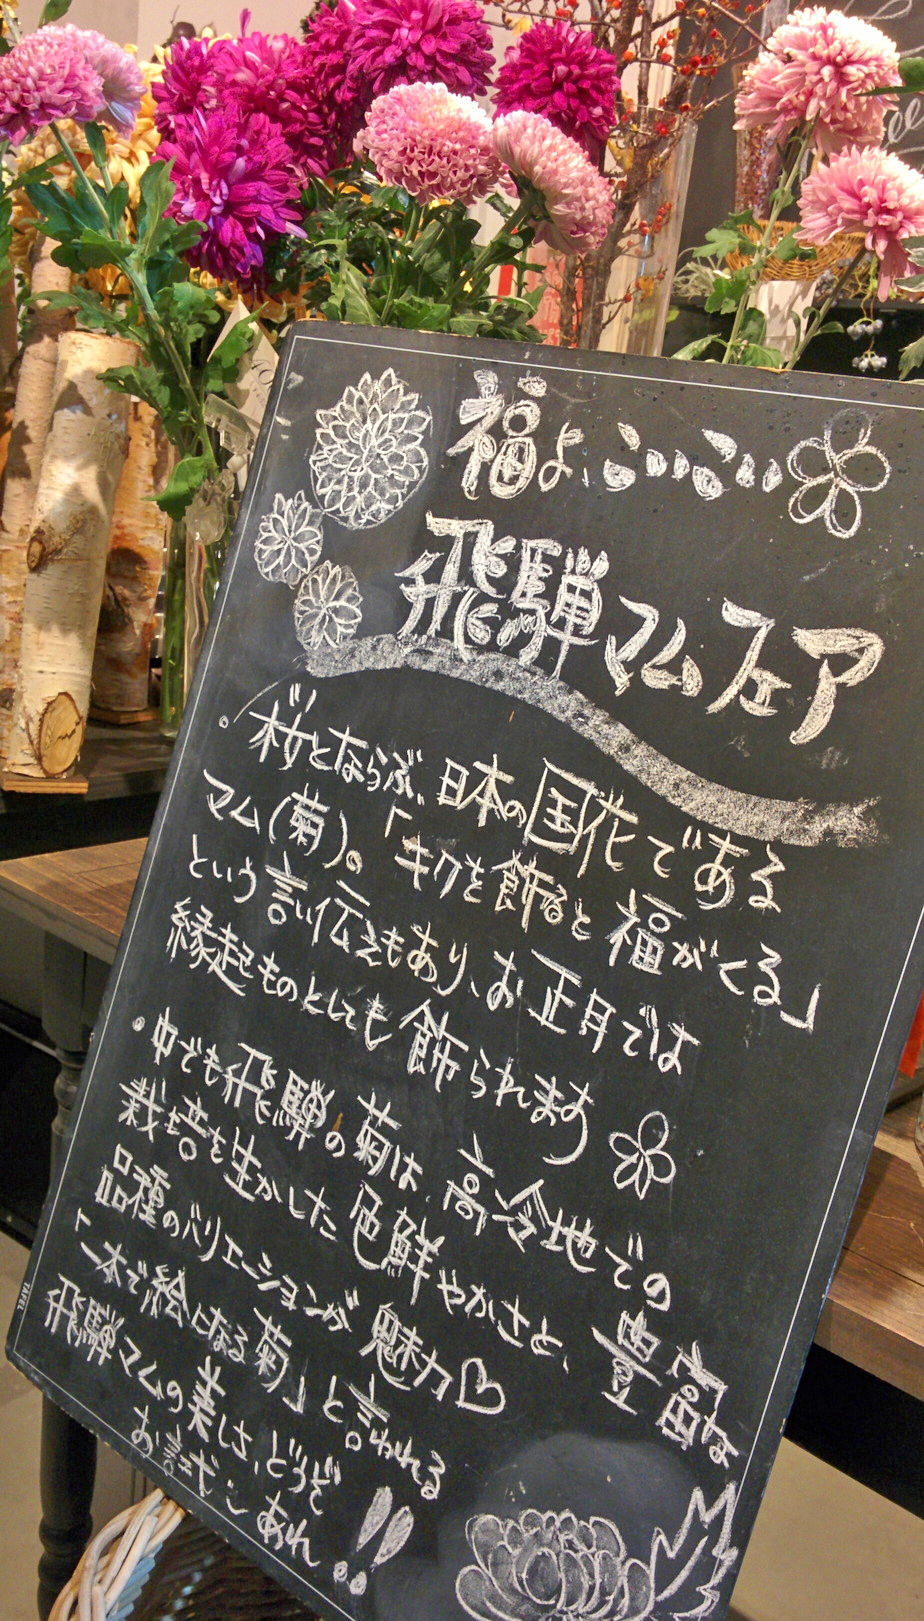 福よ、こいこい
飛騨マムフェア
・桜とならぶ、日本の国花である
マム(菊)。「キクを飾ると福がくる」
という言い伝えもあり、お正月では
縁起ものとしても飾られます
・中でも飛騨の菊は、高冷地での
栽培を生かした色鮮やかさと、豊富な
品種のバリエーションが魅力♡
「一本で絵になる菊」と言われる
飛騨マムの美しさ、どうぞ
お試しあれ!!
TAFEL